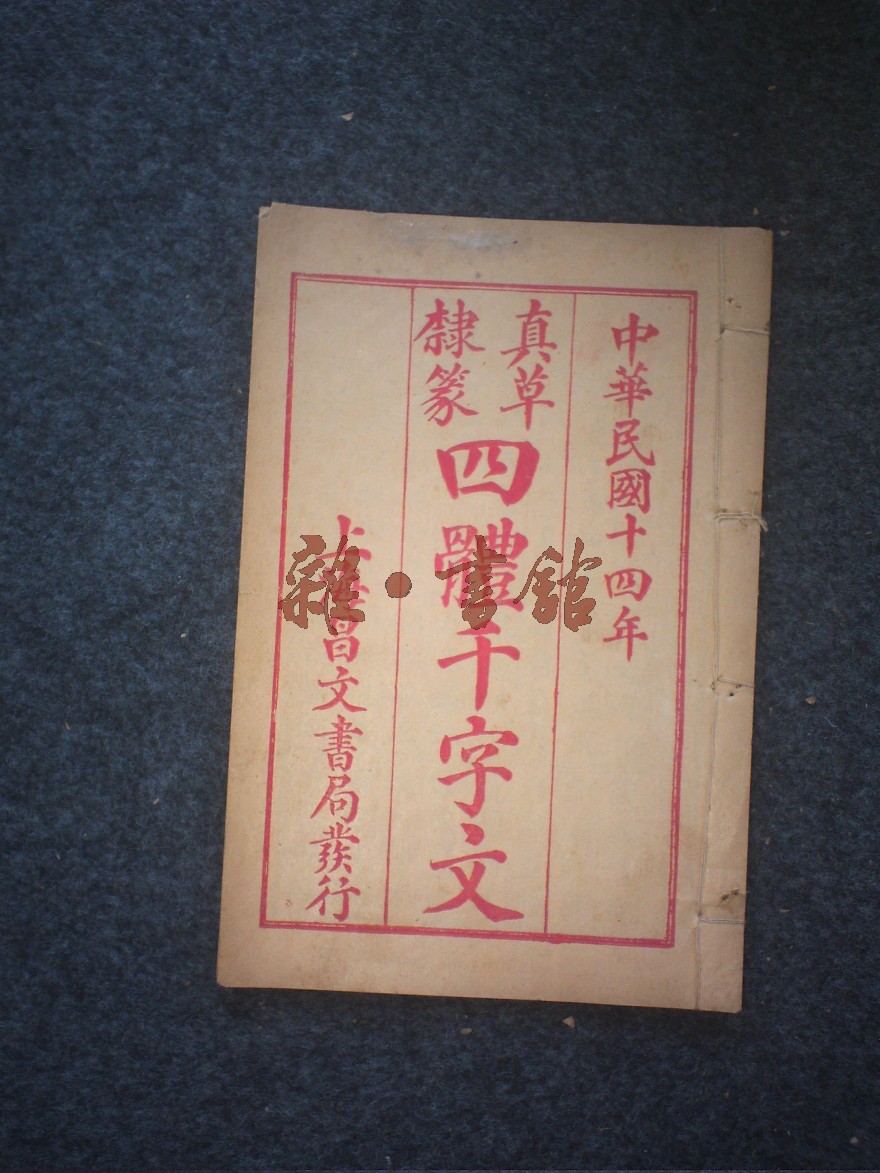 中華民國十四年
真草
隸篆
四體千字文
上海昌文書局發行
雜·書館